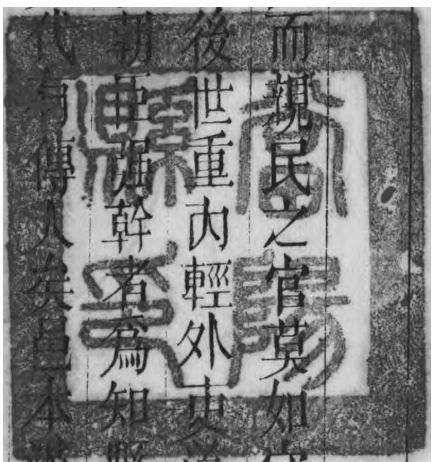 而親民之官莫如
後世重内輕外吏
朝臣强幹者為知縣
代有傳人矣邑本
當陽縣印